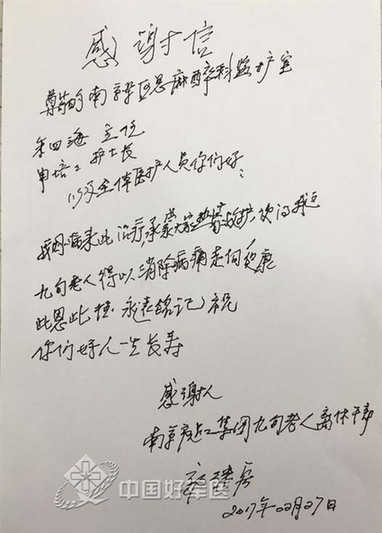 感谢信
尊敬的南京军区总麻醉科监护室
朱四海 主任
申培工 护士长
以及全体医护人员你们好:
我因病来此治疗承蒙大家热情救护 使得我这
九旬老人得以消除病痛走向健康
此恩此德 永远铭记 祝
你们好人一生长寿
感谢人
南京 集团九旬老人离休干部
2017年02月27日
中国好军医